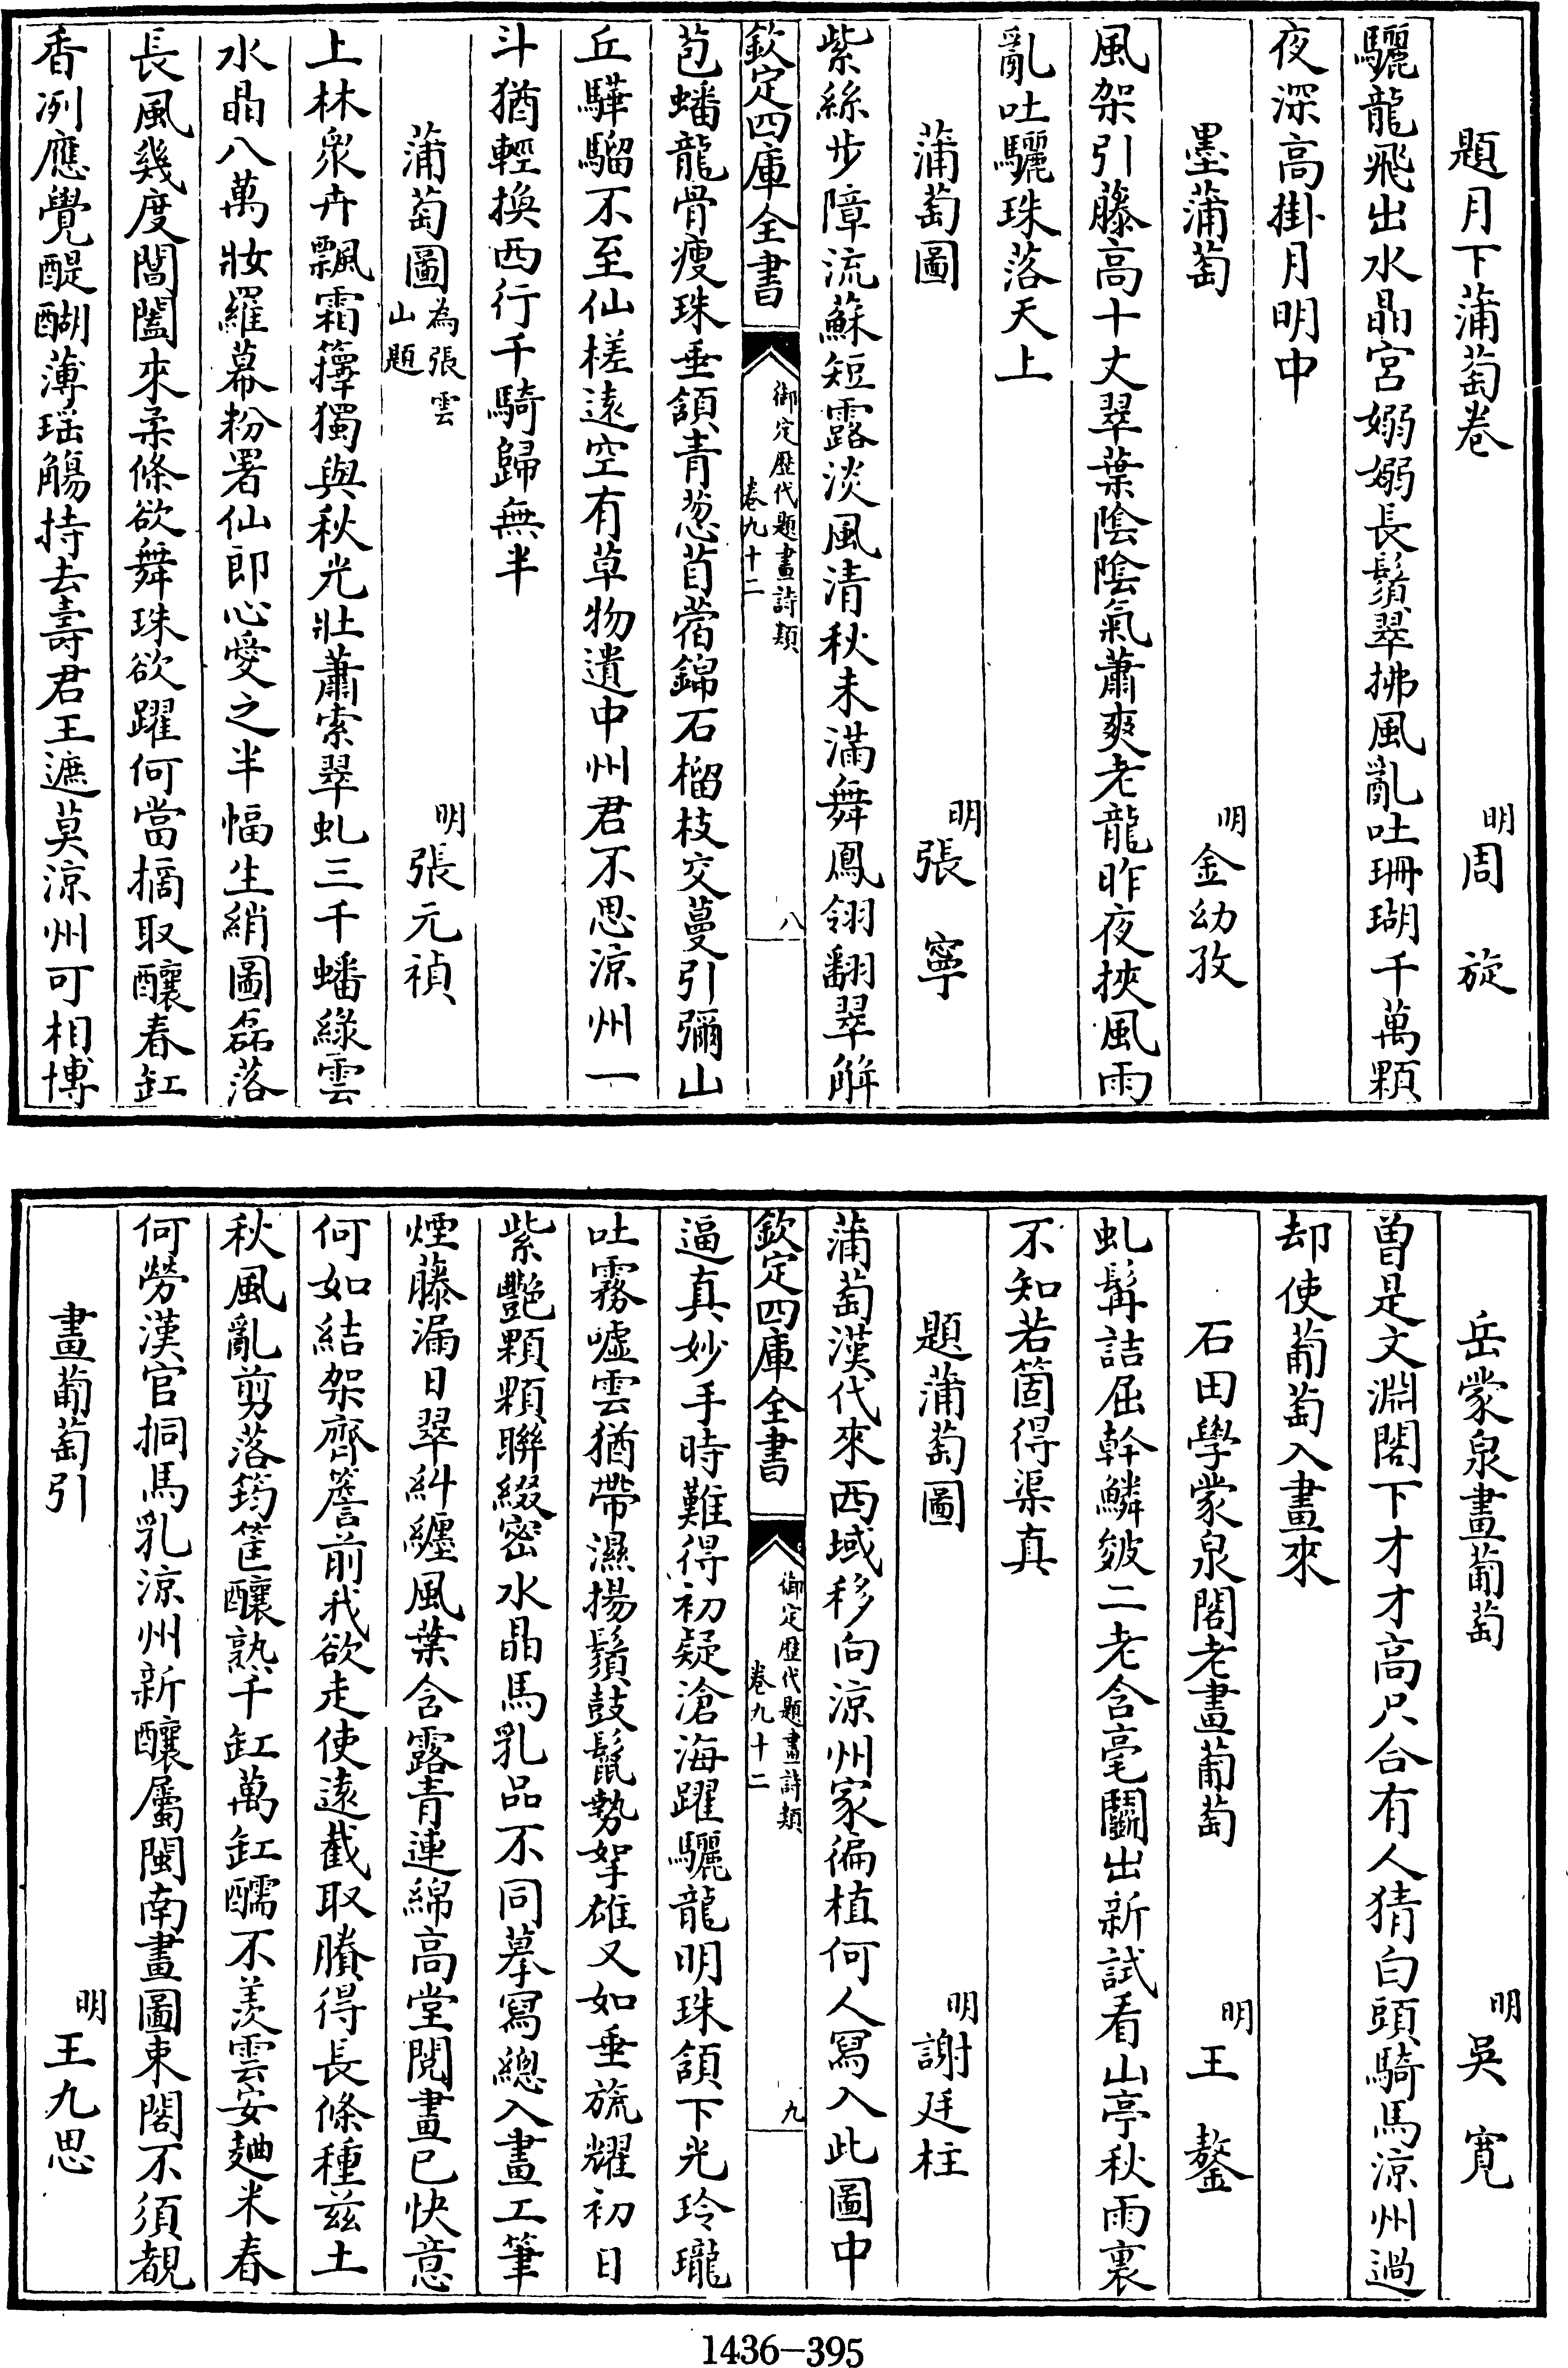 題月下蒲萄卷　明周　旋
驪龍飛出水晶宮嫋嫋長鬚翠拂風亂吐珊瑚千萬顆
夜深高掛月明中
墨蒲萄　明金幼孜
風架引藤高十丈翠葉陰陰氣蕭爽老龍昨夜挾風雨
亂吐驪珠落天上
蒲萄圖　明張　寧
紫絲步障流蘇短露淡風清秋未滿舞鳳翎翻翠觧
欽定四庫全書　御定歷代題畫詩類　卷九十二　八
苞蟠龍骨瘦珠垂頷青葱苜蓿錦石榴枝交蔓引彌山
丘驊騮不至仙槎遠空有草物遺中州君不思涼州一
斗猶輕換西行千騎歸無半
蒲萄圖為張雲山題　明張元禎
上林衆卉飄霜籜獨與秋光壯蕭索翠虬三千蟠綠雲
水晶八萬妝羅幕粉署仙郎心愛之半幅生綃圖磊落
長風幾度閶闔來柔條欲舞珠欲躍何當摘取釀春缸
香冽應覺醍醐薄瑶觴持去壽君王遮莫涼州可相博
岳蒙泉畫葡萄　明吳　寛
曽是文淵閣下才才高只合有人猜白頭騎馬涼州過
却使葡萄入畫來
石田學蒙泉閣老畫葡萄　明王　鏊
虬髯詰屈幹鱗皴二老含毫鬬出新試看山亭秋雨裏
不知若箇得渠真
題蒲萄圖　明謝廷柱
蒲萄漢代來西域移向涼州家徧植何人寫入此圖中
欽定四庫全書　御定歷代題畫詩類　卷九十二　九
逼真妙手時難得初疑滄海躍驪龍明珠頷下光玲瓏
吐霧嘘雲猶帶濕揚鬚鼓鬛勢拏雄又如垂旒耀初日
紫艷顆顆聯綴密水晶馬乳品不同摹寫總入畫工筆
煙藤漏日翠糾纒風葉含露青連綿高堂閱畫已快意
何如結架齊簷前我欲走使遠截取賸得長條種兹土
秋風亂剪落筠筐釀熟千缸萬缸醹不羨雲安麯米春
何勞漢官挏馬乳涼州新釀屬閩南畫圖東閣不須覩
畫葡萄引　明王九思
1436-395